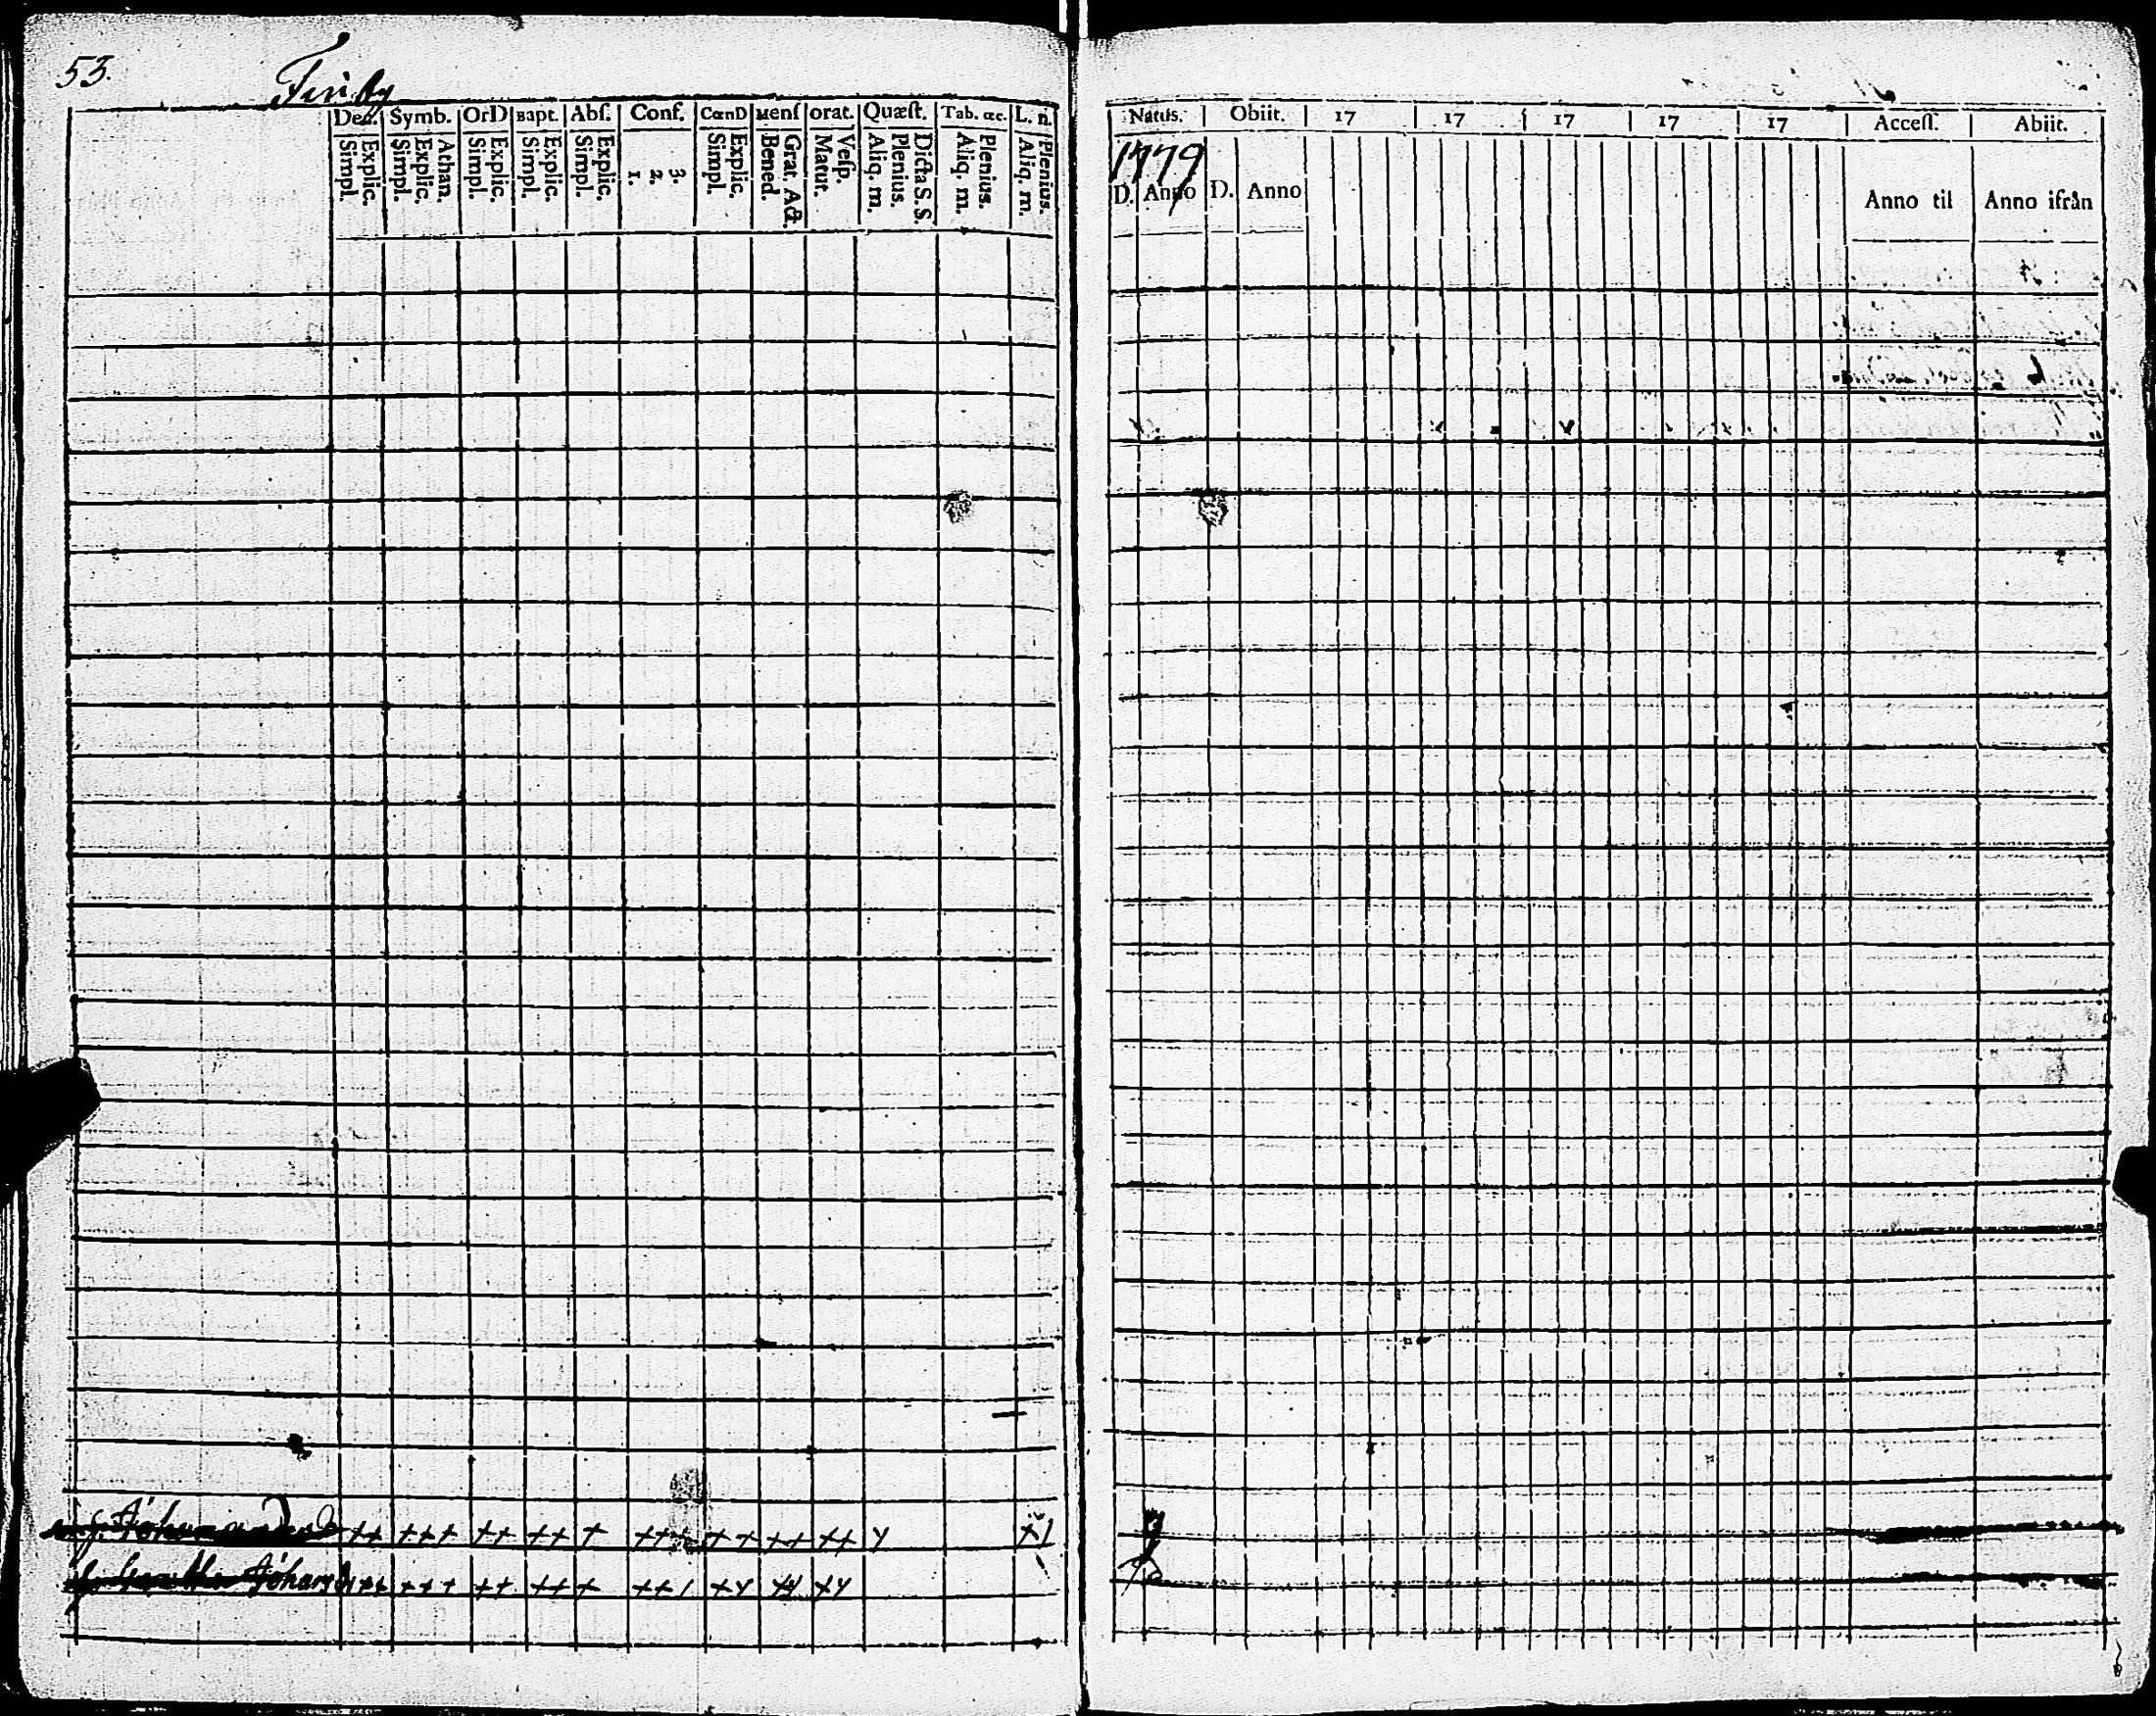 53.
Dec. Symb. OrD Bapt. Abſ. Conf. CœnD Menſ orat. Quæſt. Tab. œc. L. n.
Explic. Simpl. Athan. Explic. Simpl. Explic. Simpl. Explic. Simpl. Explic. Simpl. 3. 2. 1. Explic. Simpl. Grat. Act. Bened. Veſp. Matut. Dicta S. S. Plenius. Aliq. m. Plenius. Aliq. m. Plenius. Aliq. m.
++ +++ ++ ++ + +++ ++ ++ ++ y
Johans
Natus. Obiit. 17 17 17 17 17 Acceſſ. Abiit.
1779
D. Anno D. Anno Anno til Anno ifrån